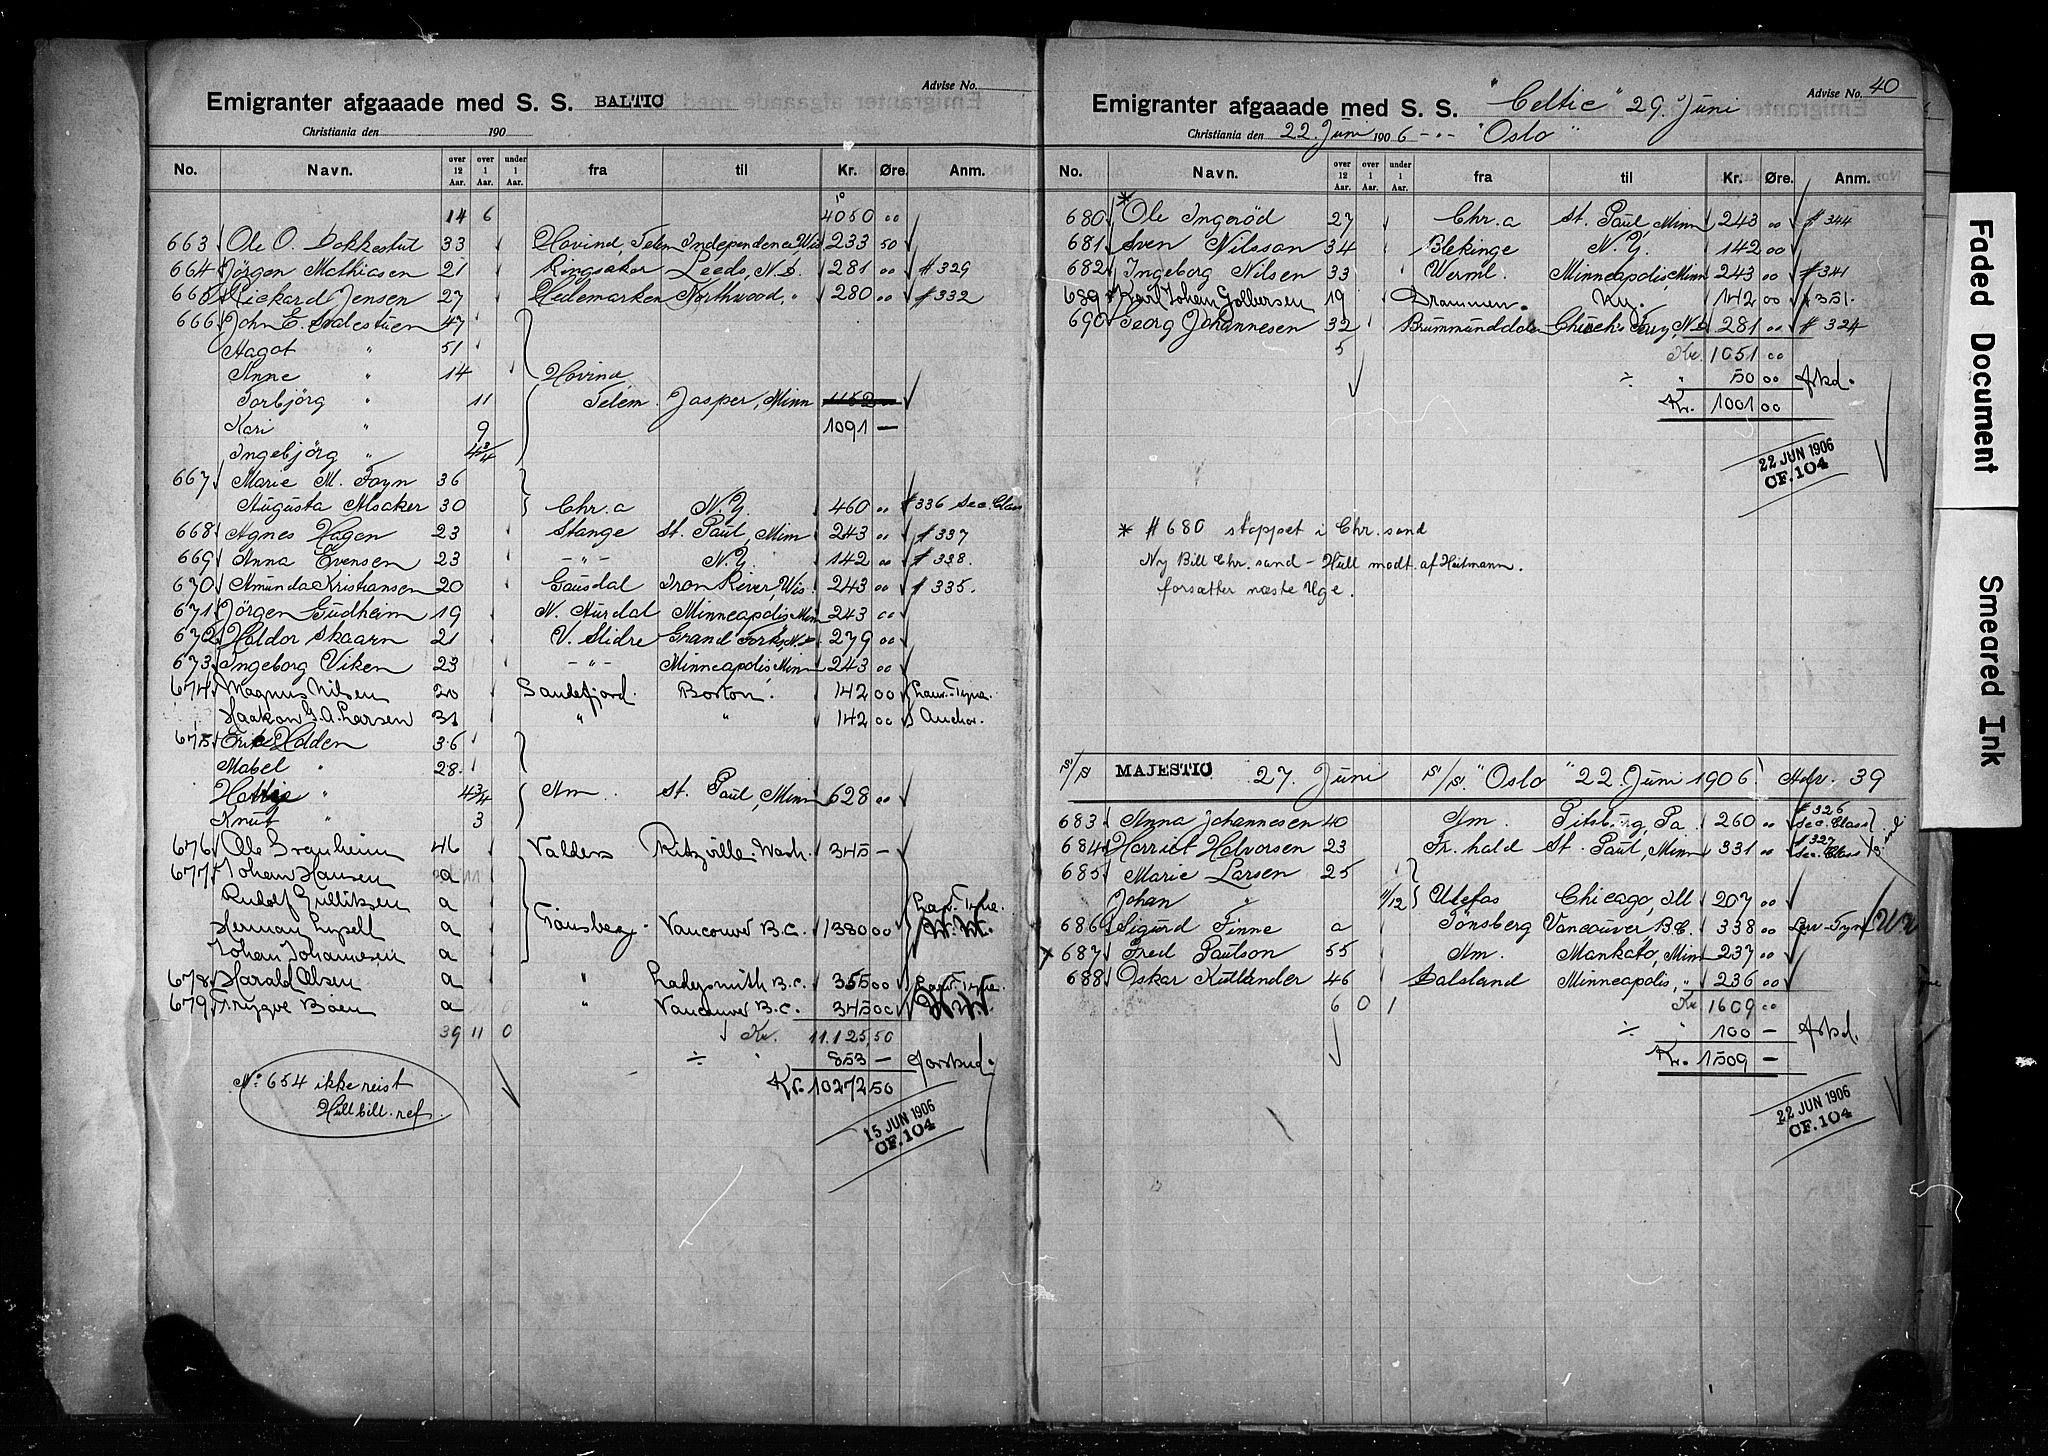 Advise No.
Emigranter afgaaade med S. S. BALTIC
Christiania den 190
No. Navn. over 12 Aar. over 1 Aar. under 1 Aar. fra til Kr. Øre. Anm.
14 6 4050 00
663 Ole O. Bakkestul 33 Hovind, Telem Independence, Wis 233 50
664 Jörgen Mathiesen 21 Ringsaker Leeds, N.D. 281 00 # 329
665 Rickard Jensen 27 Hedemarken Northwood, " 280 00 # 332
666 John E. 47
Aagot " 51
Anne " 14 Hovind
Torbjörg " 11 Telem. Jasper, Minn 1152
Kari " 9 1091 —
Ingebjörg " 4 3/4
667 Marie M. Foyn 36
Augusta Alsaker 30 Chr.a N.Y. 460 " # 336 Sec. Class
668 Agnes Hagen 23 Stange St. Paul, Minn 243 00 # 337
669 Anna Evensen 23 -"- N.Y. 142 00 # 338.
670 Amunda Kristiansen 20 Gausdal Iron River, Wis. 243 00 # 335.
671 Jörgen Gudheim 19 N. Aurdal Minneapolis Minn 243 00
672 Haldor Skaarn 21 V. Slidre Grand Forks, N.D. 279 00
673 Ingeborg Viken 23 -"- Minneapolis Minn 243 00
674 Magnus Nilsen 20 Sandefjord. Boston. 142 00 Laur.-Tyne.
Haakon G. A. Larsen 31 " " 142 00 Anchor.
675 Eric Holden 36
Mabel " 28
" 4 3/4 Am. St. Paul, Minn 628 00
Knut " 3
676 Ole Granheim 46 Valders Ritzville Wash. 345 —
677 Johan Hansen a
Rudolf Gulliksen a Laur. Tyne.
Herman a Tönsberg. Vancouver B.C. 1380 00
Johan Johannesen a
678 Harald Olsen a " Ladysmith B.C. 355 00 Laur. Tyne.
679 Trygve Boen a " Vancouver B.C. 345 00
39 11 0 Kr. 11.125,50
÷ 853 — forskud.
Kr. 10272 50
No. 654 ikke reist
Hull bill. ref.
15 JUN 1906
CF. 104
Advise No. 40
Emigranter afgaaade med S. S. "Celtic" 29. Juni
Christiania den 22. Juni 1906 -"- "Oslo"
No. Navn. over 12 Aar. over 1 Aar. under 1 Aar. fra til Kr. Øre. Anm.
*
680 Ole Ingeröd 27 Chr.a St. Paul, Minn 243 00 # 344
681 Sven Nilsson 34 Blekinge N.Y. 142 00
682 Ingeborg Nilsen 33 Verml. Minneapolis, Minn 243 00 # 341
689 Karl Johan Golbersen 19 Drammen. Ny. 142 00 # 351.
690 Georg Johannesen 32 Brummunddalen Church's Ferry, N.D. 281 00 # 324
5 Kr. 1051 00
÷ " 50 00 Arbd.
Kr. 1001 00
22 JUN 1906
CF. 104
* # 680 stoppet i Chr.sand
Ny Bill Chr.sand - Hull modt. af Heitmann.
forsætter næste Uge.
S/S MAJESTIC 27. Juni S/S. "Oslo" 22. Juni 1906 Adv. 39
683 Anna Johannesen 40 Am. Pitsburg, Pa 260 00 # 326 Sec. Class
684 Harriet Halvorsen 23 Fr. hald St. Paul, Minn 331 00 # 327 Sec. Class
685 Marie Larsen 25
Johan " 11/12 Ulefos Chicago, Ill 207 00
686 Sigurd Finne a Tönsberg Vancouver B.C. 338 00 Lar-Tyne
x 687 Fred Paulson 55 Am. Mankato, Minn 237 00
688 Oskar Kullander 46 Dalsland Minneapolis, " 236 00
6 0 1 Kr 1609 00
÷ " 100 — Arbd.
Kr. 1509 —
22 JUN 1906
CF. 104
Faded Document
Smeared Ink